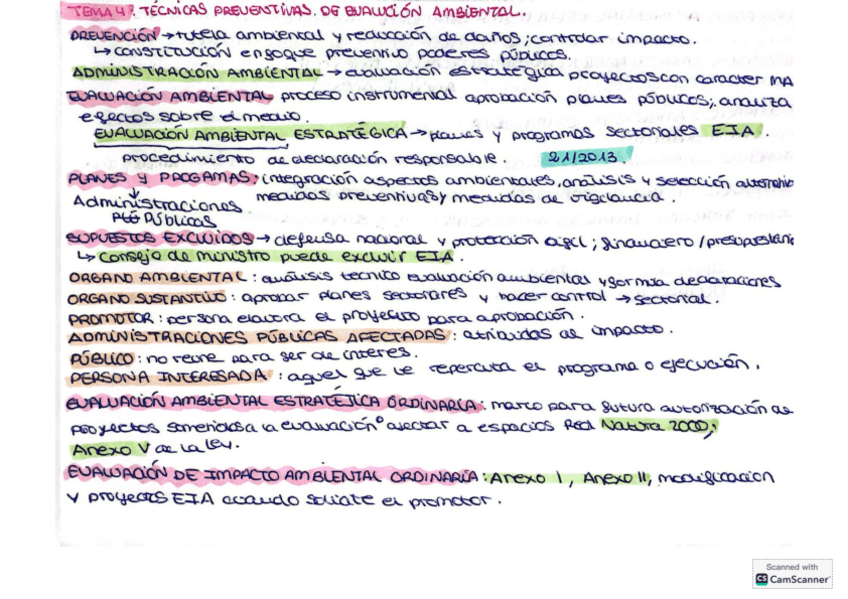 TEMA 4. TÉCNICAS PREVENTIVAS. DE EVALUCIÓN AMBIENTAL.
PREVENCIÓN → tutela ambiental y reducción de daños; controlar impacto.
↳ CONSTITUCIÓN enfoque preventivo poderes públicos.
ADMINISTRACIÓN AMBIENTAL → evaluación estratégica proyectos con caracter MA
EVALUACIÓN AMBIENTAL proceso instrumental aprobación planes públicos; analiza
efectos sobre el medio.
EVALUACIÓN AMBIENTAL ESTRATÉGICA → planes y programas sectoriales EIA.
procedimiento de declaración responsable. 21/2013.
PLANES Y PROGAMAS: integración aspectos ambientales, análisis y selección
Administraciones medidas preventivas y medidas de vigilancia.
Públicas
SUPUESTOS EXCLUIDOS → defensa nacional y protección civil; financiero/
↳ consejo de ministro puede excluir EIA.
ORGANO AMBIENTAL: análisis tecnico evaluación ambiental y formula declaraciones
ORGANO SUSTANTIVO: aprobar planes sectoriales y hacer control → sectorial.
PROMOTOR: persona elavora el proyecto para aprobación.
ADMINISTRACIONES PÚBLICAS AFECTADAS: atribuidas al impacto.
PÚBLICO: no reune para ser de interes.
PERSONA INTERESADA: aquel que le repercuta el programa o ejecución.
EVALUACIÓN AMBIENTAL ESTRATÉJICA ORDINARIA: marco para futura autorización de
proyectos sometidos a la evaluación o afectar a espacios Red Natura 2000;
Anexo V de la ley.
EVALUACIÓN DE IMPACTO AMBIENTAL ORDINARIA: Anexo I, Anexo II, modificacion
y proyectos EIA cuando solicite el promotor.
Scanned with
CS CamScanner